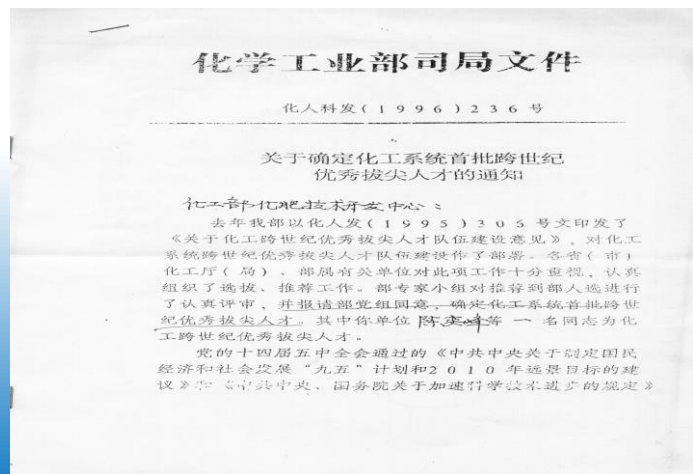 化学工业部司局文件
化人科发(1996)236号
关于确定化工系统首批跨世纪
优秀拔尖人才的通知
化工部化肥技术开发中心：
去年我部以化人发(1995)305号文印发了
《关于化工跨世纪优秀拔尖人才队伍建设意见》，对化工
系统跨世纪优秀拔尖人才队伍建设作了部署。各省(市)
化工厅(局)、部属有关单位对此项工作十分重视，认真
组织了选拔、推荐工作。部专家小组对推荐到部人选进行
了认真评审，并报请部党组同意，确定化工系统首批跨世
纪优秀拔尖人才。其中你单位 等一名同志为化
工跨世纪优秀拔尖人才。
党的十四届五中全会通过的《中共中央关于制定国民
经济和社会发展“九五”计划和2010年远景目标的建
议》和《中共中央、国务院关于加速科学技术进步的规定》